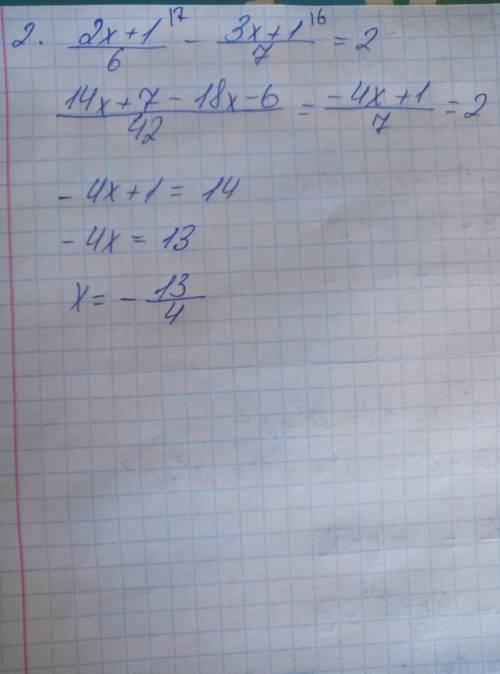 2. (2x+1)/6 |7 - (3x+1)/7 |6 = 2
(14x+7-18x-6)/42 = (-4x+1)/7 = 2
-4x+1 = 14
-4x = 13
x = -13/4